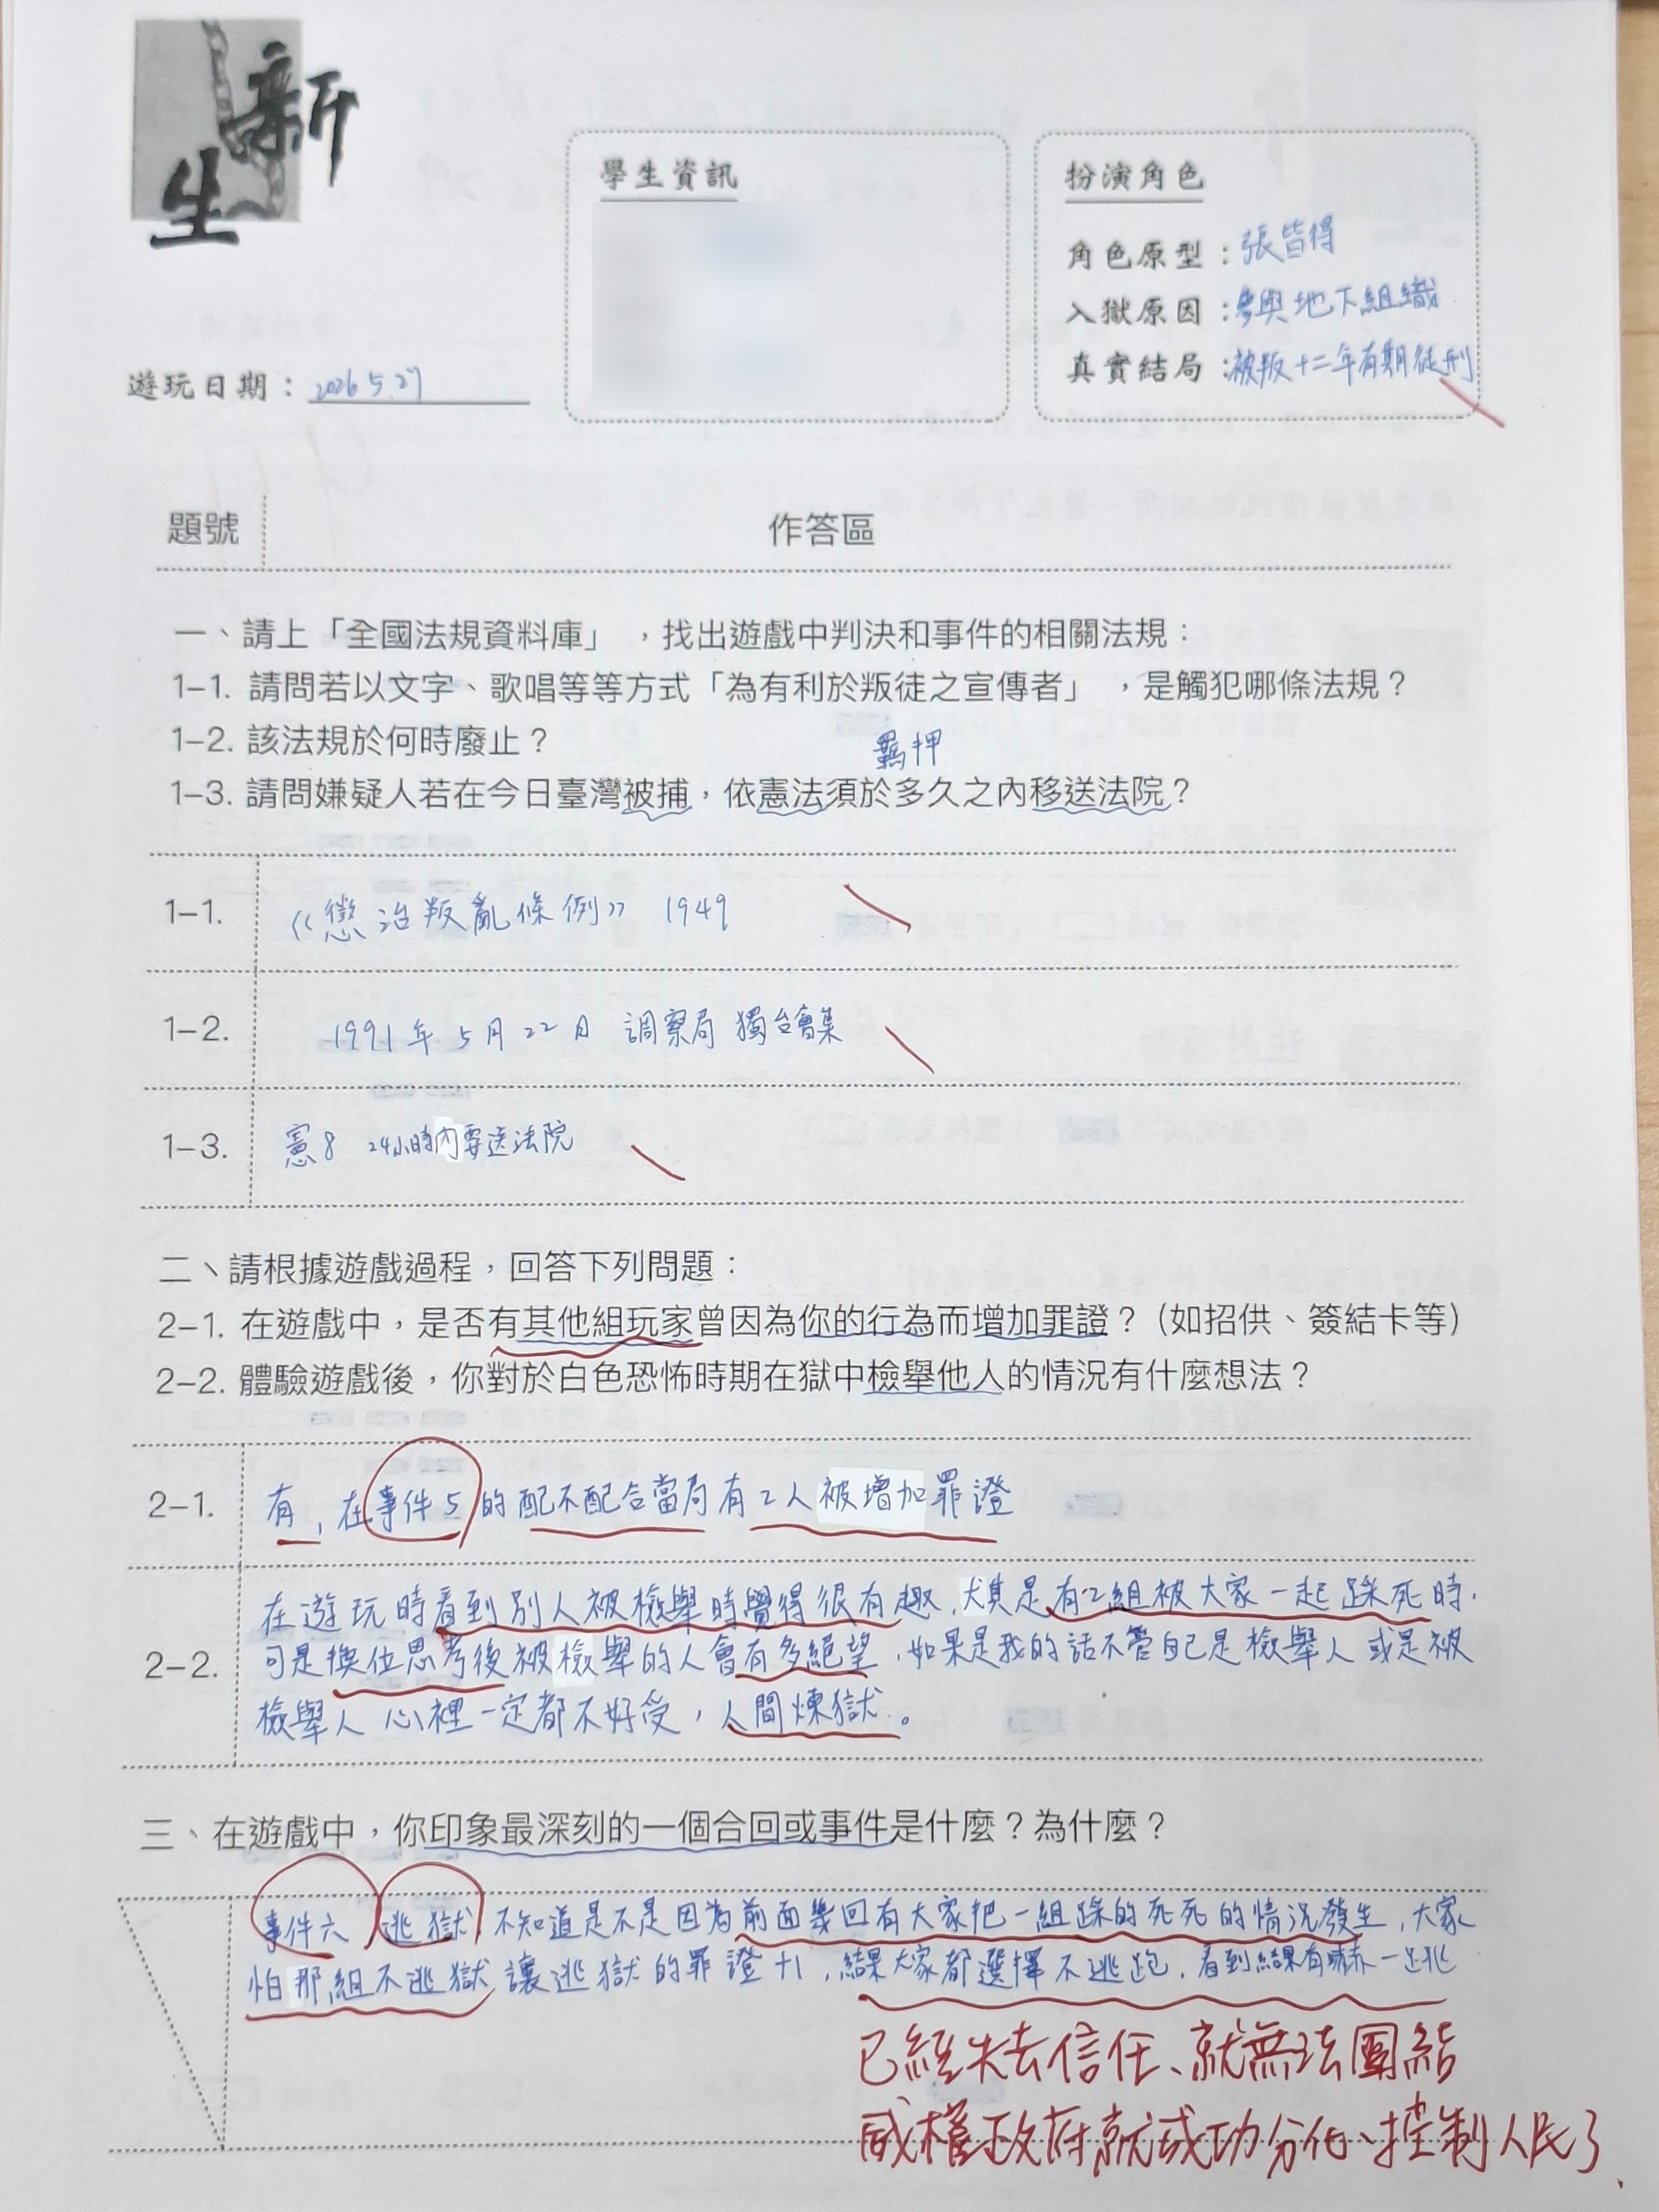 新生
學生資訊
扮演角色
角色原型：張皆得
入獄原因：參與地下組織
真實結局：被叛十二年有期徒刑
遊玩日期：2026 5.27
題號
作答區
一、請上「全國法規資料庫」，找出遊戲中判決和事件的相關法規：
1-1. 請問若以文字、歌唱等等方式「為有利於叛徒之宣傳者」，是觸犯哪條法規？
1-2. 該法規於何時廢止？
羈押
1-3. 請問嫌疑人若在今日臺灣被捕，依憲法須於多久之內移送法院？
1-1. 《懲治叛亂條例》 1949
1-2. 1991年5月22日 調察局 獨台會集
1-3. 憲8 24小時內要送法院
二、請根據遊戲過程，回答下列問題：
2-1. 在遊戲中，是否有其他組玩家曾因為你的行為而增加罪證？（如招供、簽結卡等）
2-2. 體驗遊戲後，你對於白色恐怖時期在獄中檢舉他人的情況有什麼想法？
2-1. 有，在事件5的配不配合當局有2人被增加罪證
在遊玩時看到別人被檢舉時覺得很有趣，尤其是有2組被大家一起踩死時，
2-2. 可是換位思考後被檢舉的人會有多絕望，如果是我的話不管自己是檢舉人或是被
檢舉人心裡一定都不好受，人間煉獄。
三、在遊戲中，你印象最深刻的一個合回或事件是什麼？為什麼？
事件六 逃獄 不知道是不是因為前面幾回有大家把一組踩的死死的情況發生，大家
怕那組不逃獄讓逃獄的罪證+1，結果大家都選擇不逃跑，看到結果有嚇一跳
已經失去信任、就無法團結
威權政府就成功分化、控制人民了、